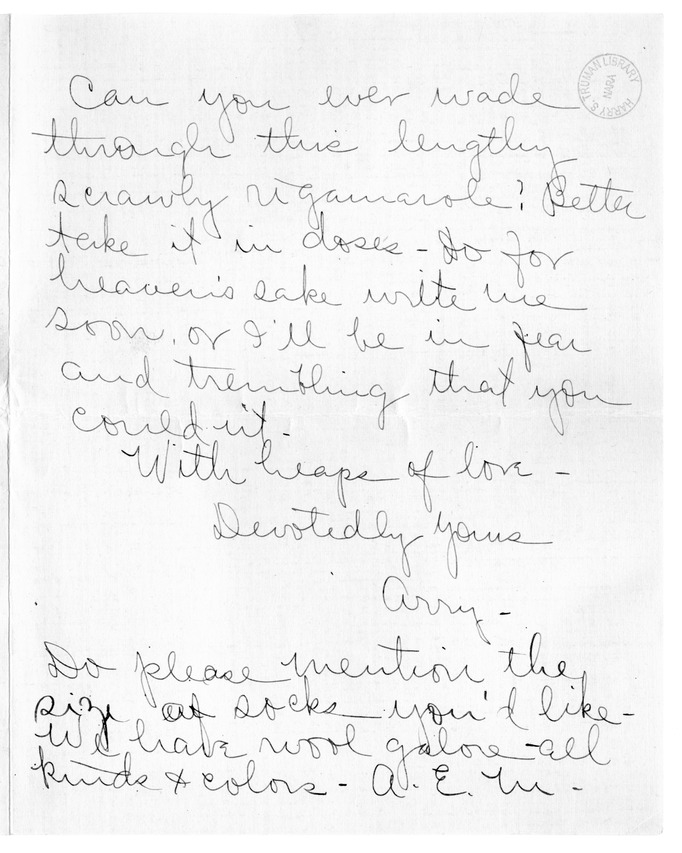 HARRY S. TRUMAN LIBRARY
NARA
Can you ever wade
through this lengthy
scrawly rigamarole? Better
take it in doses - Do for
heaven's sake write me
soon, or I'll be in fear
and trembling that you
couldn't.
With heaps of love -
Devotedly yours
Arry -
Do please mention the
size of socks you'd like -
We have wool galore - all
kinds & colors - A. E. M -